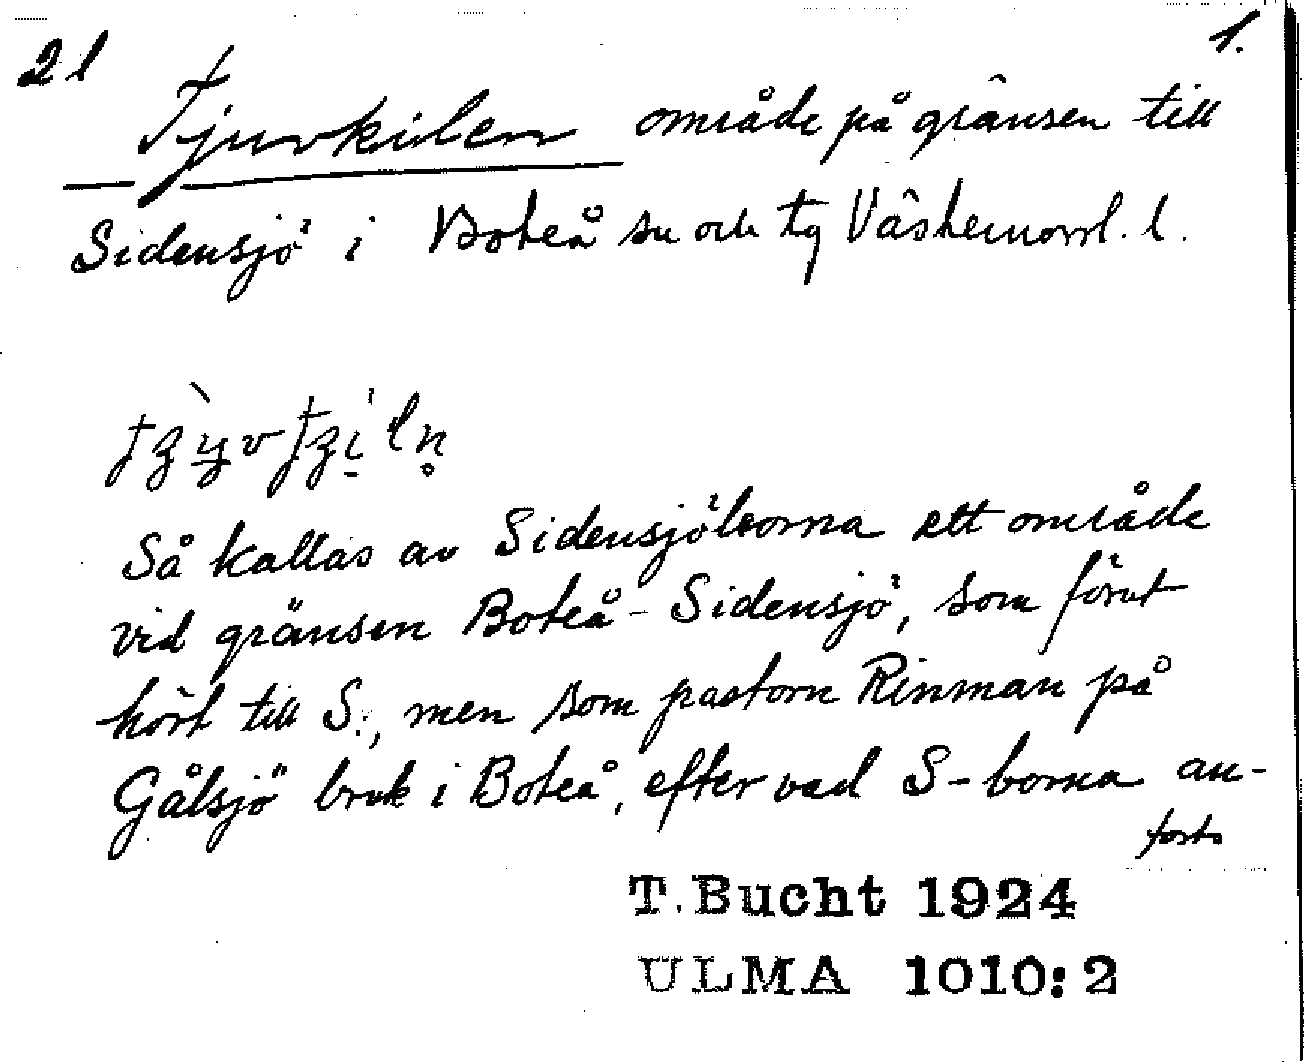 2 l 1.
Tjuvkilen område på gränsen till
Sidensjö i Boteå sn och tg Västernorrl. l.
Så kallas av Sidensjöborna ett område
vid gränsen Boteå - Sidensjö, som förut
hört till S., men som pastorn Rinman på
Gålsjö bruk i Boteå, efter vad S-borna an-
forts
T. Bucht 1924
ULMA 1010:2